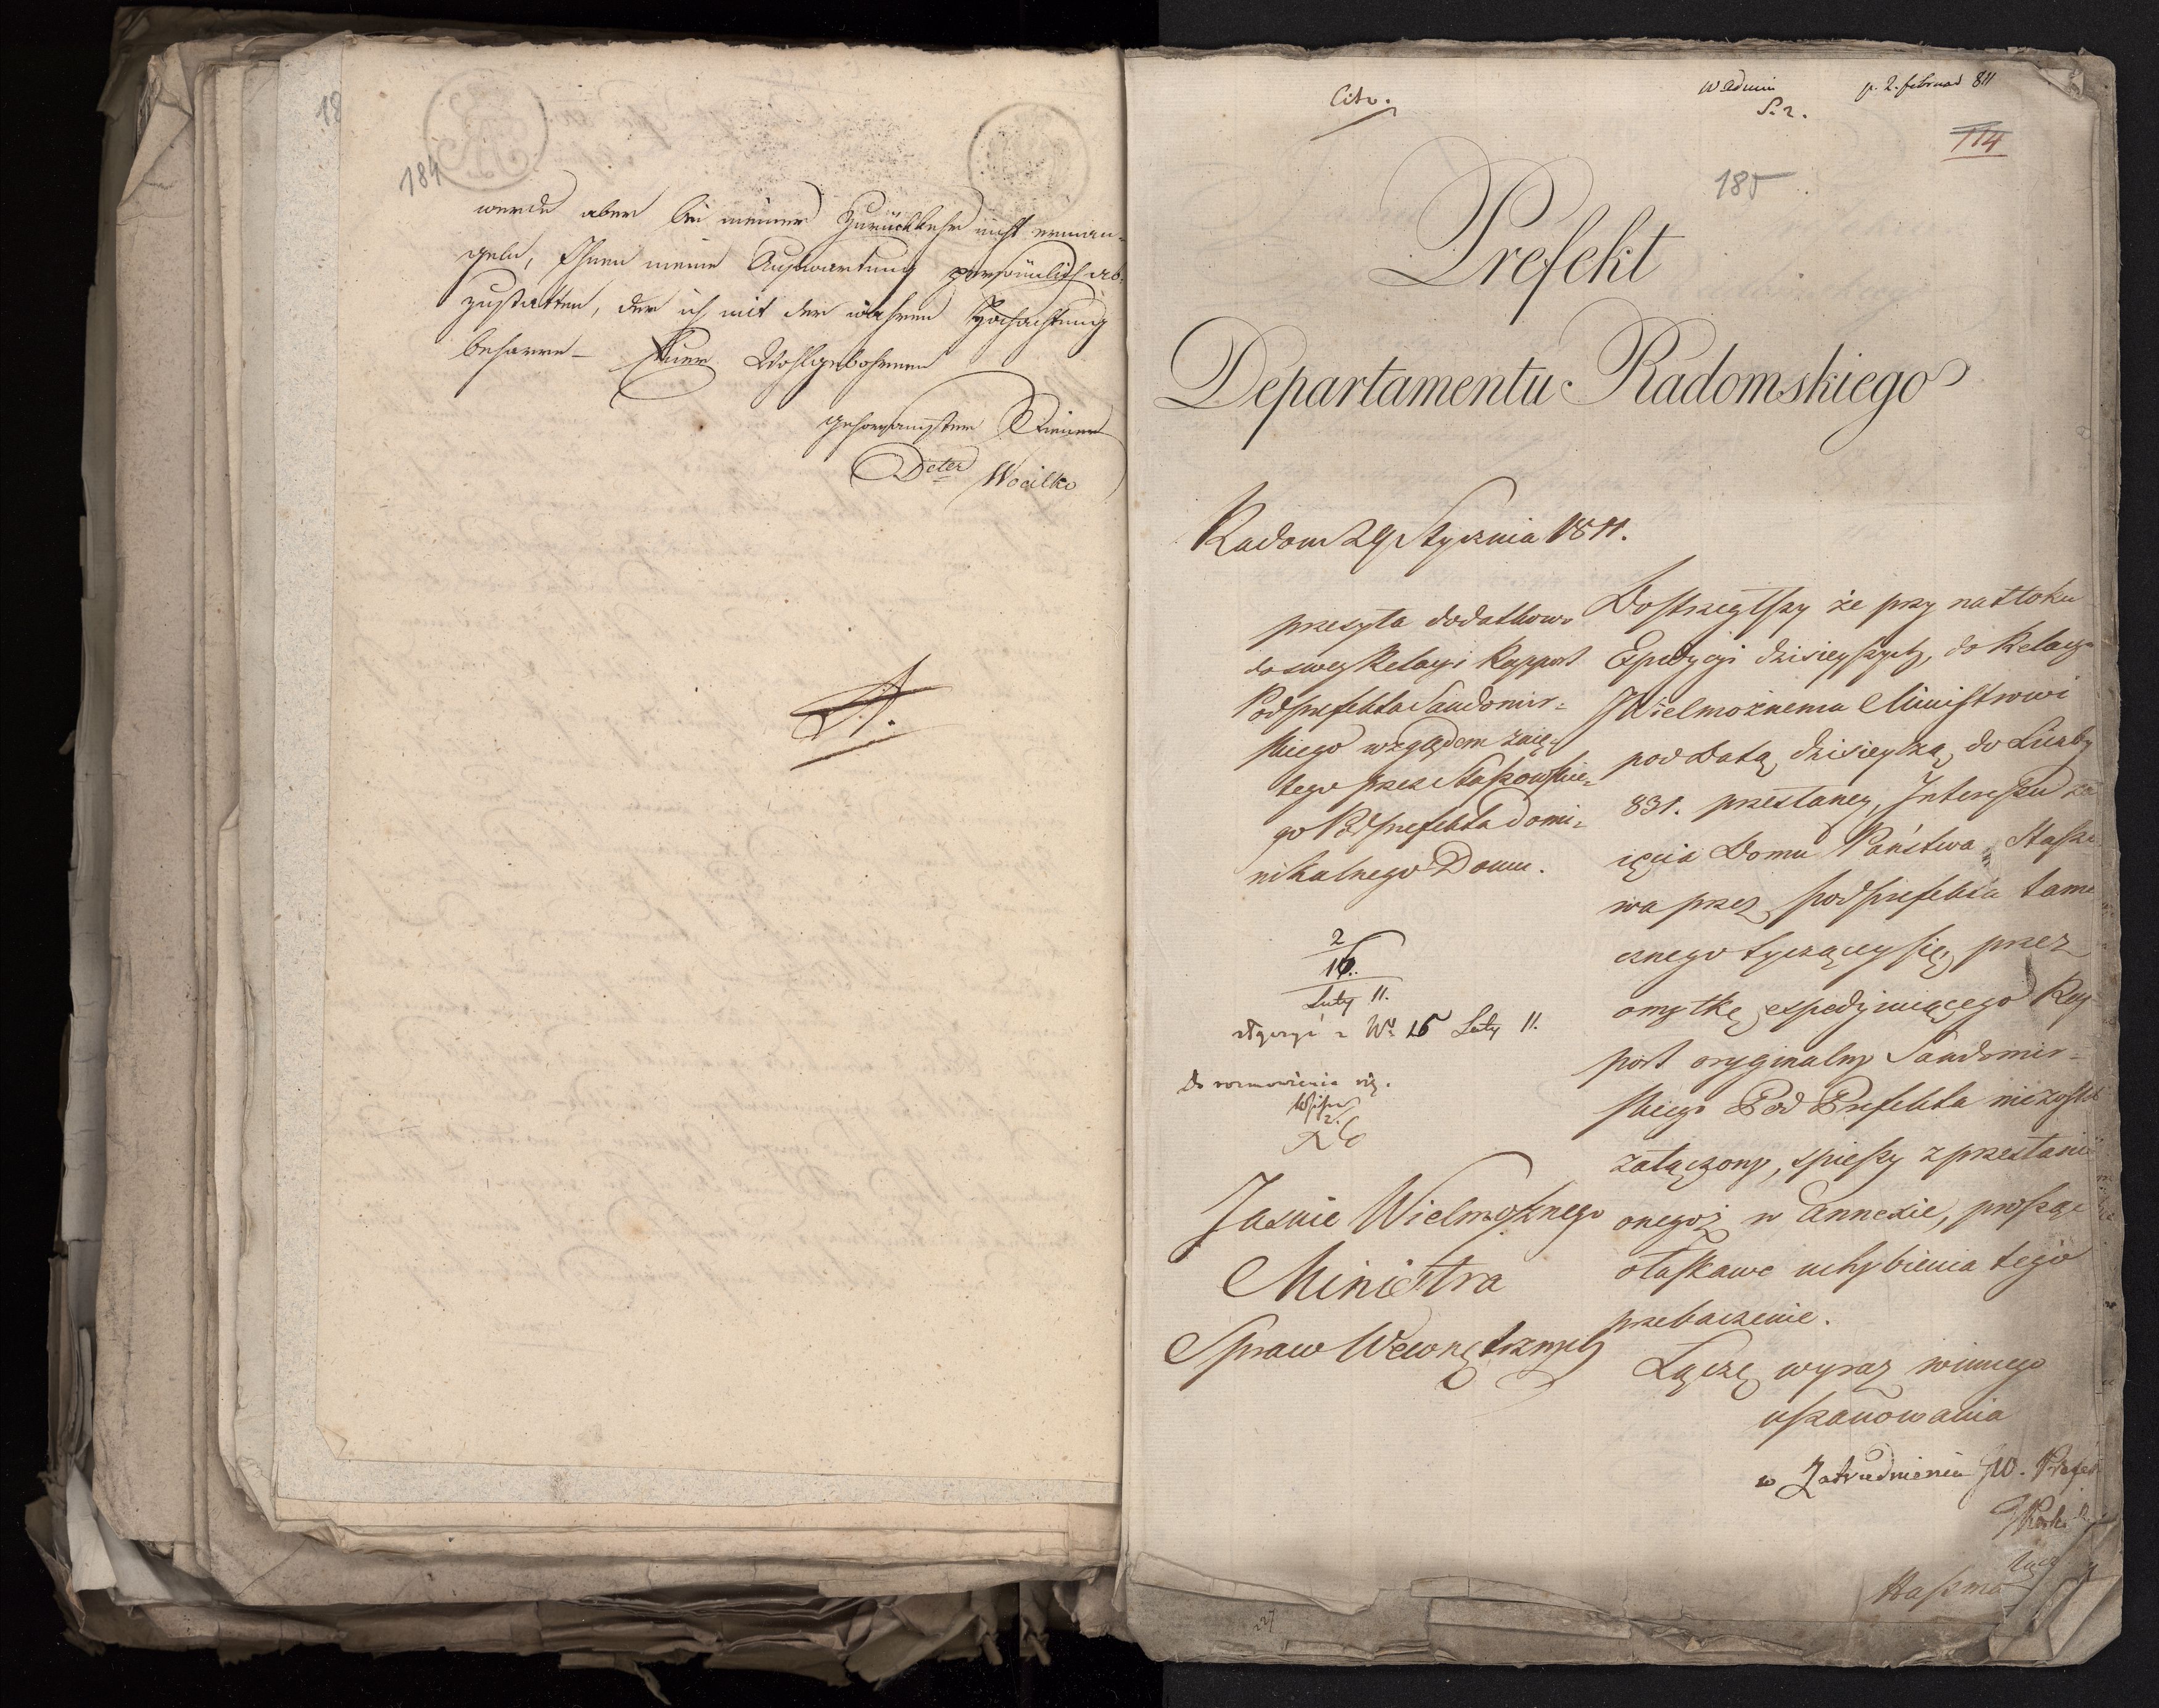 184
werde aber bei meiner Zurückkehr nicht erman-
geln, Ihnen meine Aufwartung persönlich ab-
zustatten, der ich mit der wahren Hochachtung
beharre – Euer Wohlgebohrnen
gehorsamster Diener
Wocilko
Cito.
p. 2. februar 811
114
185
Prefekt
Departamentu Radomskiego
Radom 29 Stycznia 1811.
przesyła dodatkowo
do swey Relacyi Rapport
Podprefekta Sandomir-
skiego względem zaię-
tego przez Staszowskie-
go Podprefekta Domi-
nikalnego Domu.
2
16.
Luty 11.
16 Luty 11.
do rozmowienia się.
Jaśnie Wielmożnego
Ministra
Spraw Wewnętrznych
Dostrzegłszy że przy natłoku
Expedycyi dzisieyszych, do Relacyi
JWielmożnemu Ministrowi
pod Datą dzisieyszą do Liczby
831. przesłaney, Interessu za
ięcia Domu Państwa Staszo
wa przez podprefekta tame
cznego tyczącey się, przez
omyłkę expedyuiącego Rap
port oryginalny Sandomir-
skiego Pod Prefekta niezostał
załączony, spieszy z przesłanie
onegoż w Annexie, prosząc
o łaskawe uchybienia tego
przebaczenie.
Łączę wyraz winnego
uszanowania
w Zatrudnieniu JW. Prefek